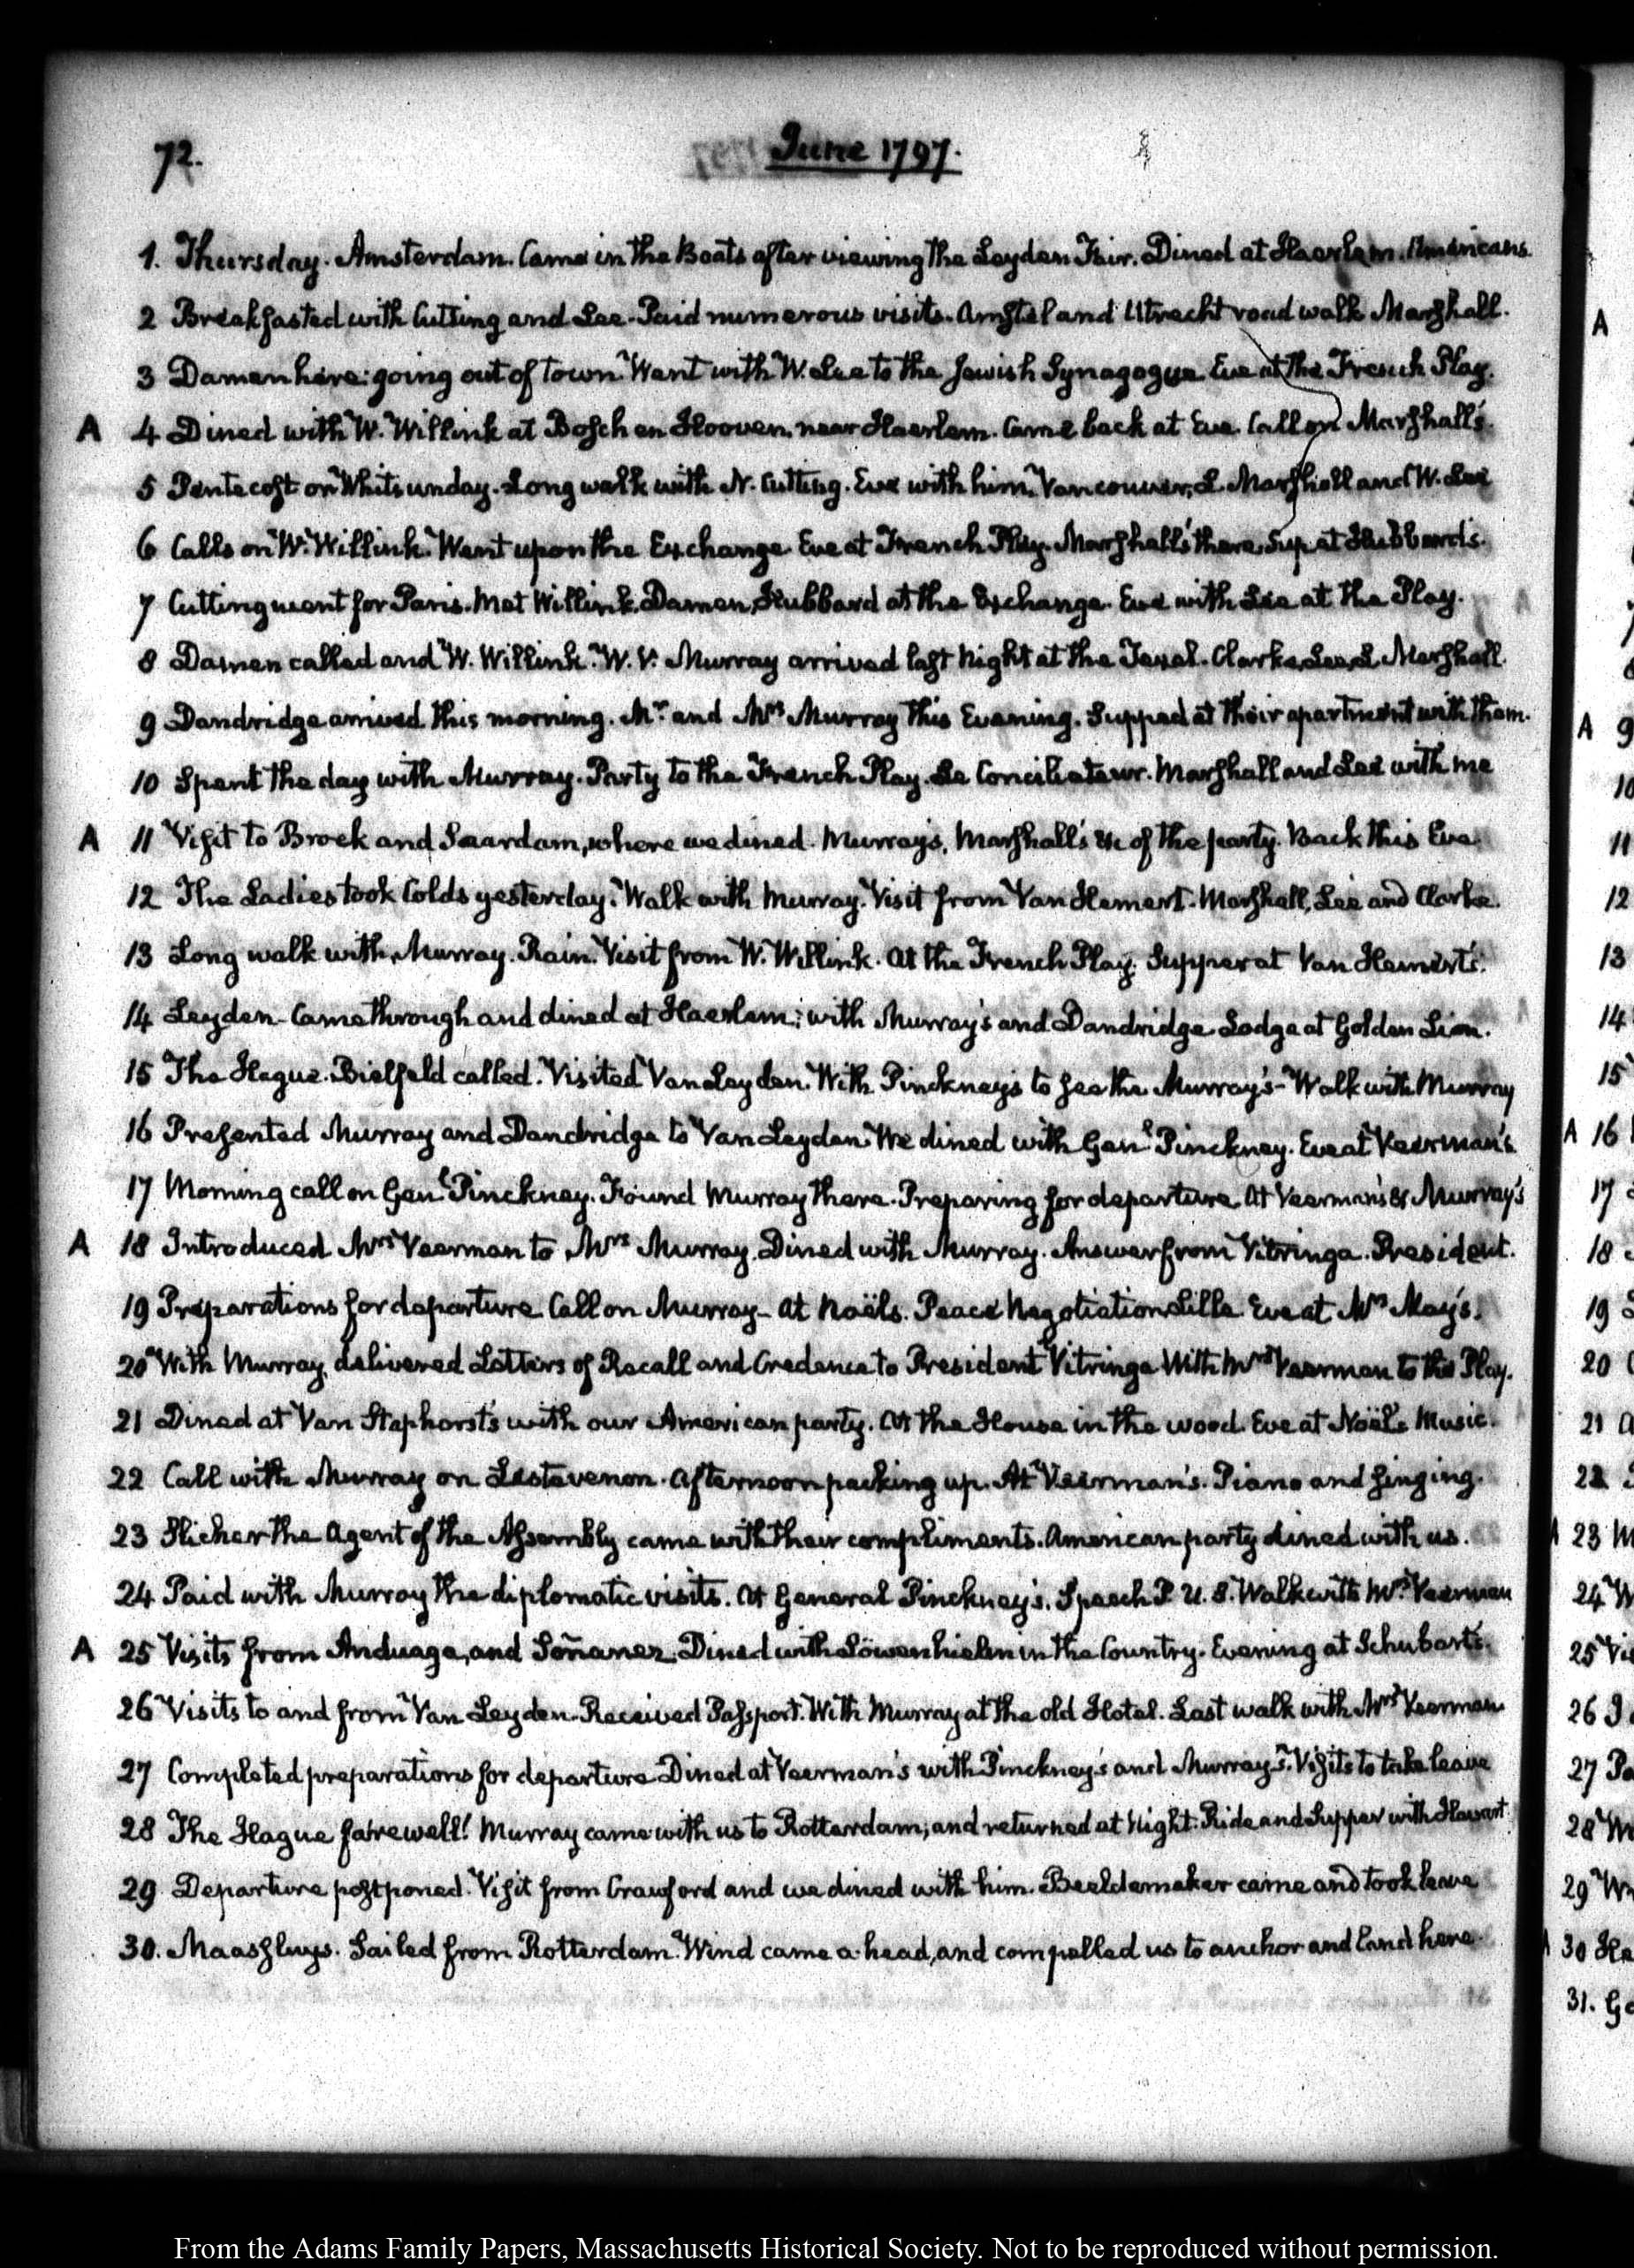 72.
June 1797.
1. Thursday. Amsterdam. Came in the Boats after viewing the Leyden Fair. Dined at Haerlem. Americans.
2 Breakfasted with Cutting and Lee. Paid numerous visits. Amstel and Utrecht road walk Marshall.
3 Damen here: going out of town. Went with W. Lee to the Jewish Synagogue Eve at the French Play.
A 4 Dined with W. Willink at Bosch en Hooven, near Haerlem. Came back at Eve. Call on Marshall's.
5 Pentecost or Whitsunday. Long walk with N. Cutting. Eve with him, Vancouver, L. Marshall and W. Lee
6 Calls on W. Willink. Went upon the Exchange. Eve at French Play. Marshall's there, Sup at Hubbard's.
7 Cutting went for Paris. Met Willink, Damen, Hubbard at the Exchange. Eve with Lee at the Play.
8 Damen called and W. Willink. W. V. Murray arrived last night at the Texel. Clarke, Lee, L Marshall.
9 Dandridge arrived this morning. Mr. and Mrs Murray this Evening. Supped at their apartment with them.
10 Spent the day with Murray. Party to the French Play. Le Conciliateur. Marshall and Lee with me
A 11 Visit to Broek and Saardam, where we dined. Murray's, Marshall's &c of the party. Back this Eve.
12 The Ladies took Colds yesterday. Walk with Murray. Visit from Van Hemert. Marshall, Lee and Clarke.
13 Long walk with Murray. Rain. Visit from W. Willink. At the French Play. Supper at Van Hemert's.
14 Leyden. Came through and dined at Haerlem; with Murray's and Dandridge Lodge at Golden Lion.
15 The Hague. Bielfeld called. Visited Van Leyden. With Pinckney's to see the Murray's- Walk with Murray
16 Presented Murray and Dandridge to Van Leyden. We dined with Genl Pinckney. Eve at Veerman's
17 Morning call on Genl Pinckney. Found Murray there. Preparing for departure. At Veerman's & Murray's
A 18 Introduced Mrs Veerman to Mrs Murray. Dined with Murray. Answer from Vitringa. President.
19 Preparations for departure Call on Murray- At Noël's. Peace Negotiation Lille. Eve at Mrs May's.
20 With Murray, delivered Letters of Recall and Credence to President Vitringa With Mrs Veerman to the Play.
21 Dined at Van Staphorst's with our American party. At the House in the wood. Eve at Noël's Music.
22 Call with Murray on Lestevenon. Afternoon packing up. At Veerman's. Piano and singing.
23 Slicher the Agent of the Assembly came with their compliments. American party dined with us.
24 Paid with Murray the diplomatic visits. At General Pinckney's. Speech P. U. S. Walk with Mrs Veerman
A 25 Visits from Anduaga, and Soñanez. Dined with Löwenhielm in the Country. Evening at Schubart's.
26 Visits to and from Van Leyden. Received Passport. With Murray at the old Hotel. Last walk with Mrs Veerman
27 Completed preparations for departure Dined at Veerman's with Pinckney's and Murray's. Visits to take leave
28 The Hague farewell! Murray came with us to Rotterdam; and returned at Night. Ride and Supper with
29 Departure postponed. Visit from Crawford and we dined with him. Beeldemaker came and took leave
30. Maassluys. Sailed from Rotterdam. Wind came a-head, and compelled us to anchor and land here.
A
9
10
11
12
13
14
15
A 16
17
18
19
20
21
22
23
24
25
26
27
28
29
30
31.
From the Adams Family Papers, Massachusetts Historical Society. Not to be reproduced without permission.